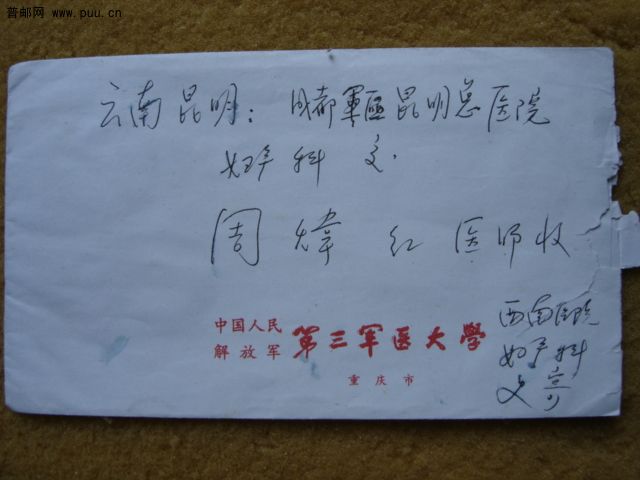 普邮网 www.puu.cn
云南昆明：成都軍區昆明总医院
妇产科 交
周煒红医师收
中国人民
解放军 第三军医大學
重庆市
西南医院
妇产科
寄